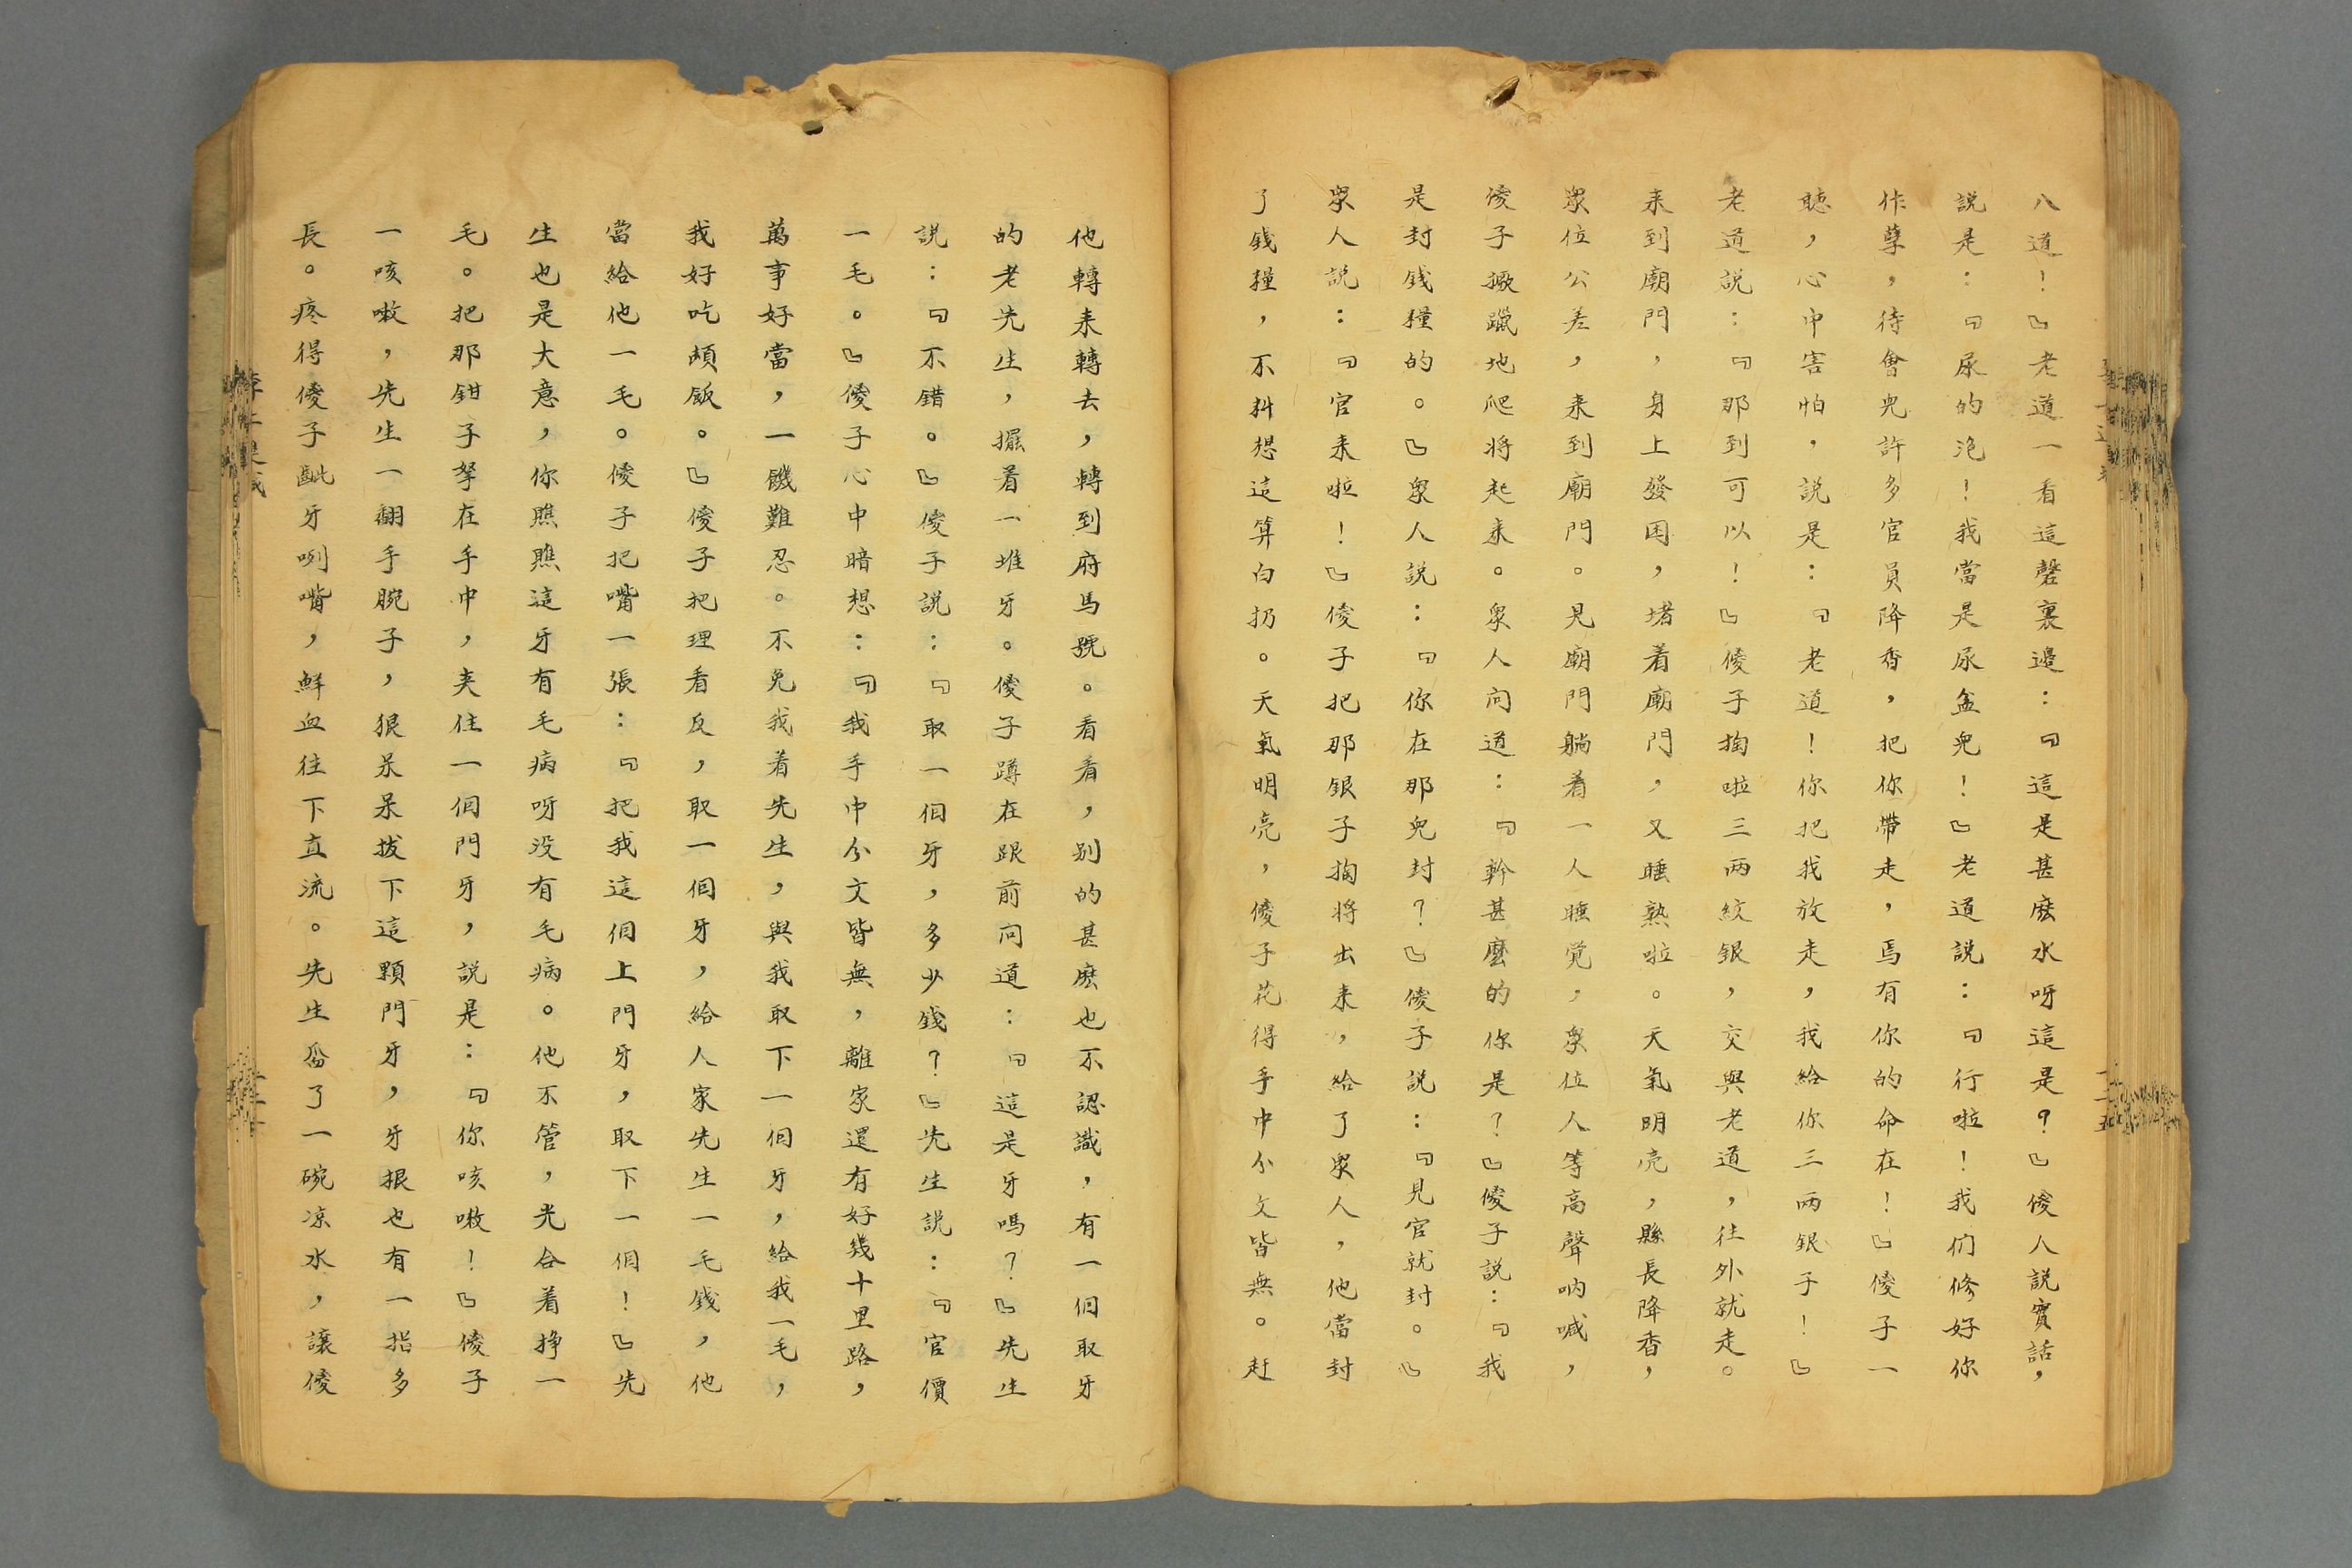 八道！』老道一看這罄裏邊：『這是甚麽水呀這是？』傻人説實話，
説是：『尿的泡！我當是尿盆兒！』老道説：『行啦！我们修好你
作孽，待會兒許多官員降香，把你帶走，焉有你的命在！』傻子一
聽，心中害怕，説是：『老道！你把我放走，我給你三两銀子！』
老道説：『那到可以！』傻子掏啦三两紋銀，交與老道，往外就走。
来到廟門，身上發困，堵着廟門，又睡熟啦。天氣明亮，縣長降香，
衆位公差，来到廟門。見廟門躺着一人睡覚，衆位人等高聲呐喊，
傻子撅躐地爬将起来。衆人问道：『幹甚麽的你是？』傻子説：『我
是封钱糧的。』衆人説：『你在那兒封？』傻子説：『見官就封。』
衆人説：『官来啦！』傻子把那銀子掏将出来，給了衆人，他當封
了錢糧，不料想這算白扔。天氣明亮，傻子花得手中分文皆無。赶
他轉来轉去，轉到府馬號。看看，别的甚麽也不認識，有一個取牙
的老先生，擺着一堆牙。傻子蹲在跟前问道：『這是牙嗎？』先生
説：『不錯。』傻子説：『取一個牙，多少錢？』先生説：『官價
一毛。』傻子心中暗想：『我手中分文皆無，離家還有好幾十里路，
萬事好當，一饑難忍。不免我着先生，與我取下一個牙，給我一毛，
我好吃頓飯。』傻子把理看反，取一個牙，給人家先生一毛錢，他
當給他一毛。傻子把嘴一張：『把我這個上門牙，取下一個！』先
生也是大意，你瞧瞧這牙有毛病呀没有毛病。他不管，光合着挣一
毛。把那鉗子拏在手中，夹住一個門牙，説是：『你咳嗽！』傻子
一咳嗽，先生一翻手腕子，狠呆呆拔下這顆門牙，牙根也有一指多
長。疼得傻子齜牙咧嘴，鮮血往下直流。先生舀了一碗凉水，讓傻